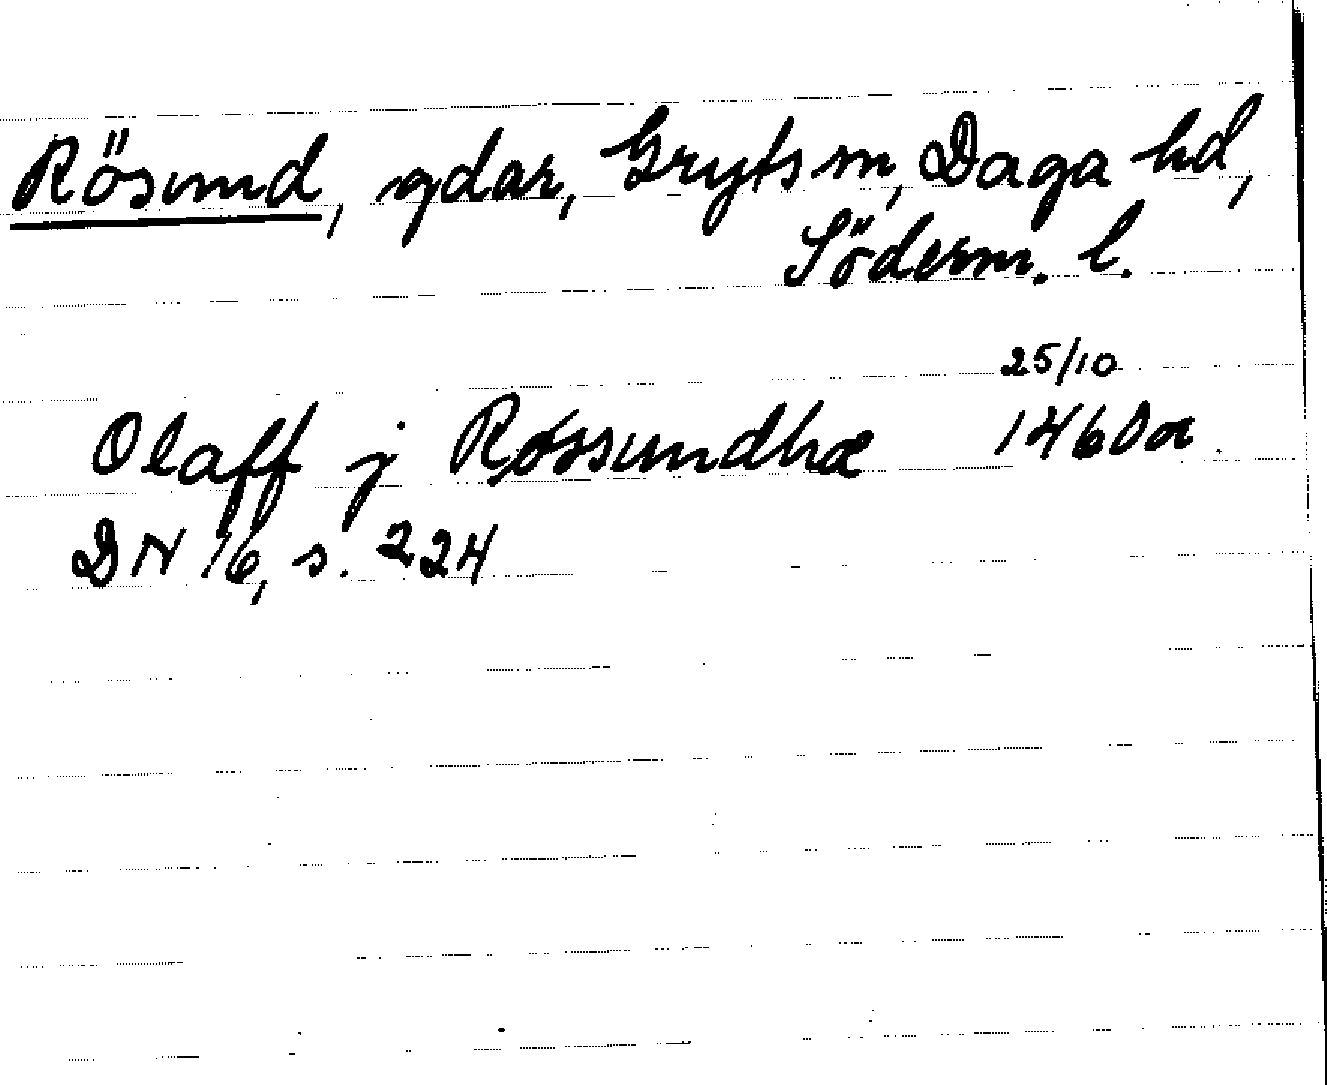 Rösund, gdar, Gryts sn, Daga hd,
Söderm. l.
25/10
Olaff j Røssundhæ 1460 or.
DN 16, s. 224